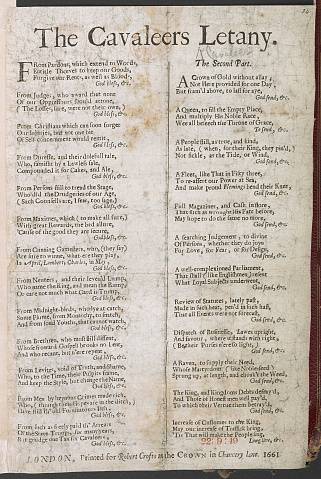 The Cavaleers Letany.
FRom Pardons, which extend to Words,
Entitle Theeves to keep our Goods,
Forgive our Rents, as well as Bloods,
God bless, &c.
From Judges, who award that none
Of our Oppressours should attone,
(The Losses, sure, were not their own)
God bless, &c.
From Christians which can soon forget
Our Injuries, but not one bit
Of Self-concernment would remit,
God bless, &c.
From Duresse, and their dolefull tale,
Who, famisht by a Lawless sale,
Compounded it for Cakes, and Ale,
God bless, &c.
From Persons still to tread the Stage,
Who did the Drudgeries of our Age,
(Such Counsells are, I fear, too sage,)
God bless, &c.
From Maximes, which (to make all sure,)
With great Rewards, the bad allure,
'Cause of the good they are secure,
God bless, &c.
From Cunning Gamesters, who, (they say)
Are sure to winne, what-e're they play,
In April, Lambert, Charles, in May,
God bless, &c.
From Neuters, and their level'd Dump,
Who name the King, and mean the Rump,
Or care not much what Card is Trump,
God bless, &c.
From Midnight-birds, who lye at catch,
Some Plume, from Monarchy, to snatch,
And from fond Youths, that cannot watch,
God bless, &c.
From Brethren, who must still dissent,
Whose froward Gospell brooks no Lent,
And who recant, but ne're repent,
God bless, &c.
From Levites, void of Truth, and Shame,
Who, to the Time, their Pulpits frame,
And keep the Style, but change the Name,
God bless, &c.
From Men by heynous Crimes made rich,
Who, (though their Hopes are in the ditch,)
Have still th' old
God bless, &c.
From such as freely paid th' Arrears
Of the State-Troops, for many years,
But grudge one Tax for Cavaleers,
God bless, &c.
The Second Part.
A Crown of Gold without allay,
Not here provided for one Day,
But fram'd above, to last for aye,
God send, &c.
A Queen, to fill the Empty Place,
And multiply His Noble Race,
We all beseech the Throne of Grace,
To send, &c.
A People still, as true, and kinde,
As late, (when, for their King, they pin'd,)
Not fickle, as the Tide, or Wind,
God send, &c.
A Fleet, like That in Fifty three,
To re-assert our Power at Sea,
And make proud Flemings bend their Knee,
God send, &c.
Full Magazines, and Cash in store,
That such as wrought His Fate before,
May hope to do the same no more,
God send, &c.
A searching Judgement, to divine
Of Persons, whether they do joyn
For Love, for Fear, or for Design,
God send, &c.
A well-complexioned Parliament,
That shall (like Englishmen) resent
What Loyal Subjects underwent,
God send, &c.
Review of Statutes, lately past,
Made in such heat, pen'd in such hast,
That all Events were not forecast,
God send, &c.
Dispatch of Businesse, Lawes upright,
And favour, where it stands with right,
(Be their Purses ne're so light,)
God send, &c.
A Raven, to supply their Need,
Whose Martyrdom (like Noble seed)
Sprung up, at length, and choak'd the Weed,
God send, &c.
The King, and Kingdoms Debts defray'd,
And Those of Honest men well pay'd,
To which their Vertue them betray'd,
God send, &c.
Increase of Customes to the King,
May our increase of Traffick bring,
'Tis That will make the People sing,
Long live, &c.
LONDON, Printed for Robert Crofts at the CROWN in Chancery lane. 1661.